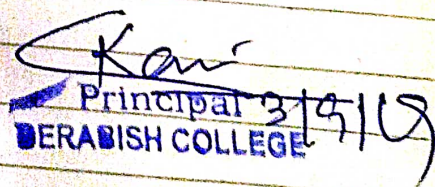 Principal 3/9/19
DERABISH COLLEGE